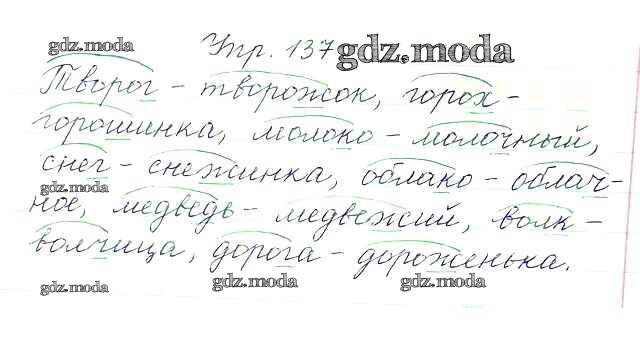 gdz.moda Упр. 137 gdz.moda
Творог - творожок, горох -
горошинка, молоко - молочный,
снег - снежинка, облако - облач-
gdz.moda
ное, медведь - медвежий, волк -
волчица, дорога - дороженька.
gdz.moda gdz.moda gdz.moda